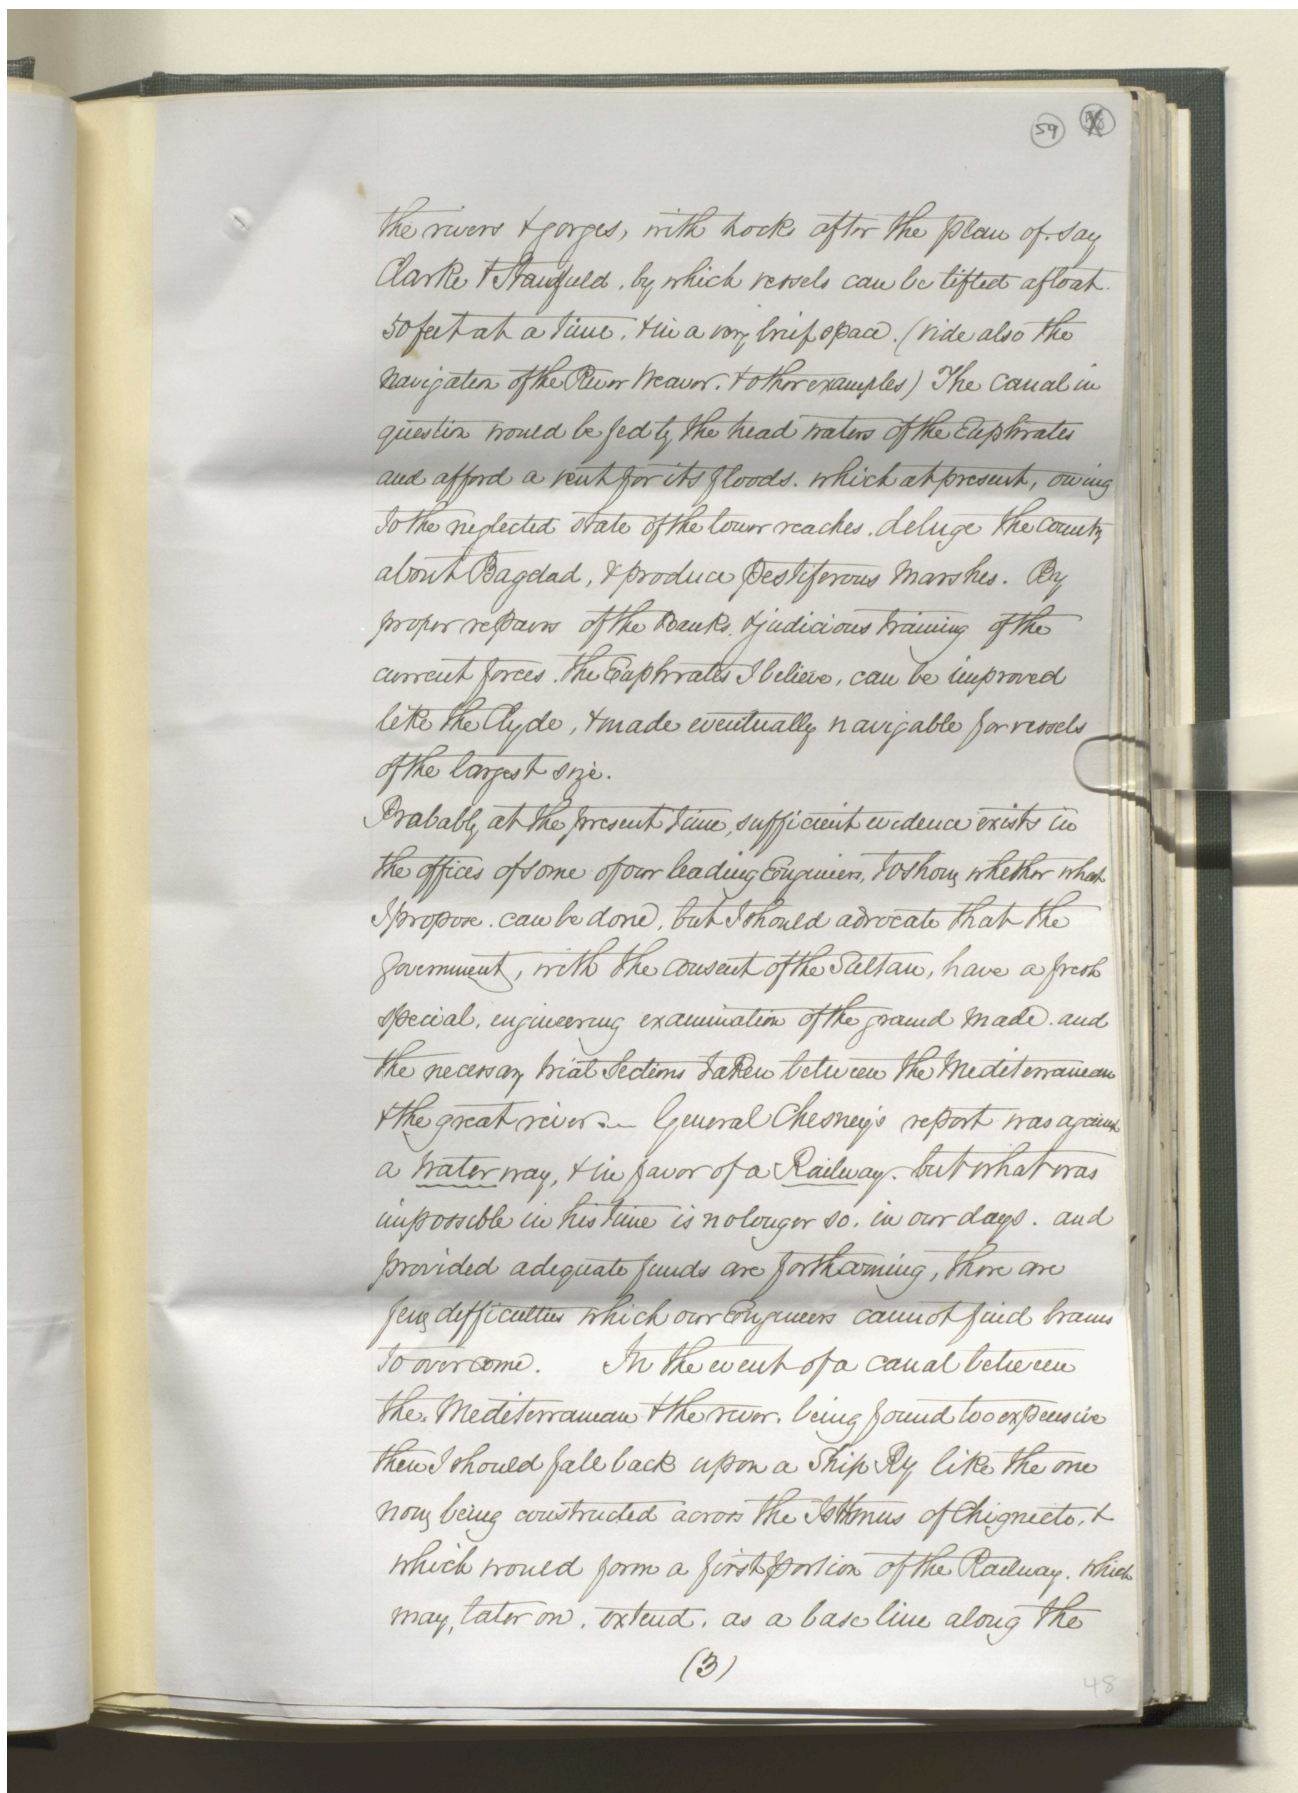 59
the rivers & gorges, with locks after the plan of, say
Clarke & Stanfield, by which vessels can be lifted afloat
50 feet at a time, & in a very brief space. (vide also the
navigation of the River Weaver, & other examples) The canal in
question would be fed by the head waters of the Euphrates
and afford a vent for its floods. which at present, owing
to the neglected state of the lower reaches. deluge the country
about Bagdad, & produce pestiferous marshes. By
proper repairs of the Banks, & judicious training of the
current forces. the Euphrates I believe, can be improved
like the Clyde, & made eventually navigable for vessels
of the largest size.
Probably, at the present time, sufficient evidence exists in
the offices of some of our leading Engineers, to show whether what
I propose. can be done, but I should advocate that the
Government, with the consent of the Sultan, have a fresh
special, engineering examination of the ground made. and
the necessary trial Sections taken between the Mediterranean
& the great river — General Chesney's report was against
a water way, & in favor of a Railway. but what was
impossible in his time is no longer so, in our days. and
provided adequate funds are forthcoming, there are
few difficulties which our Engineers cannot find brains
to overcome. In the event of a canal between
the Mediterranean & the river, being found too expensive
then I should fall back upon a Ship Ry like the one
now being constructed across the Isthmus of Chignecto, &
which would form a first portion of the Railway. which
may, later on, extend, as a base line along the
(3)
48